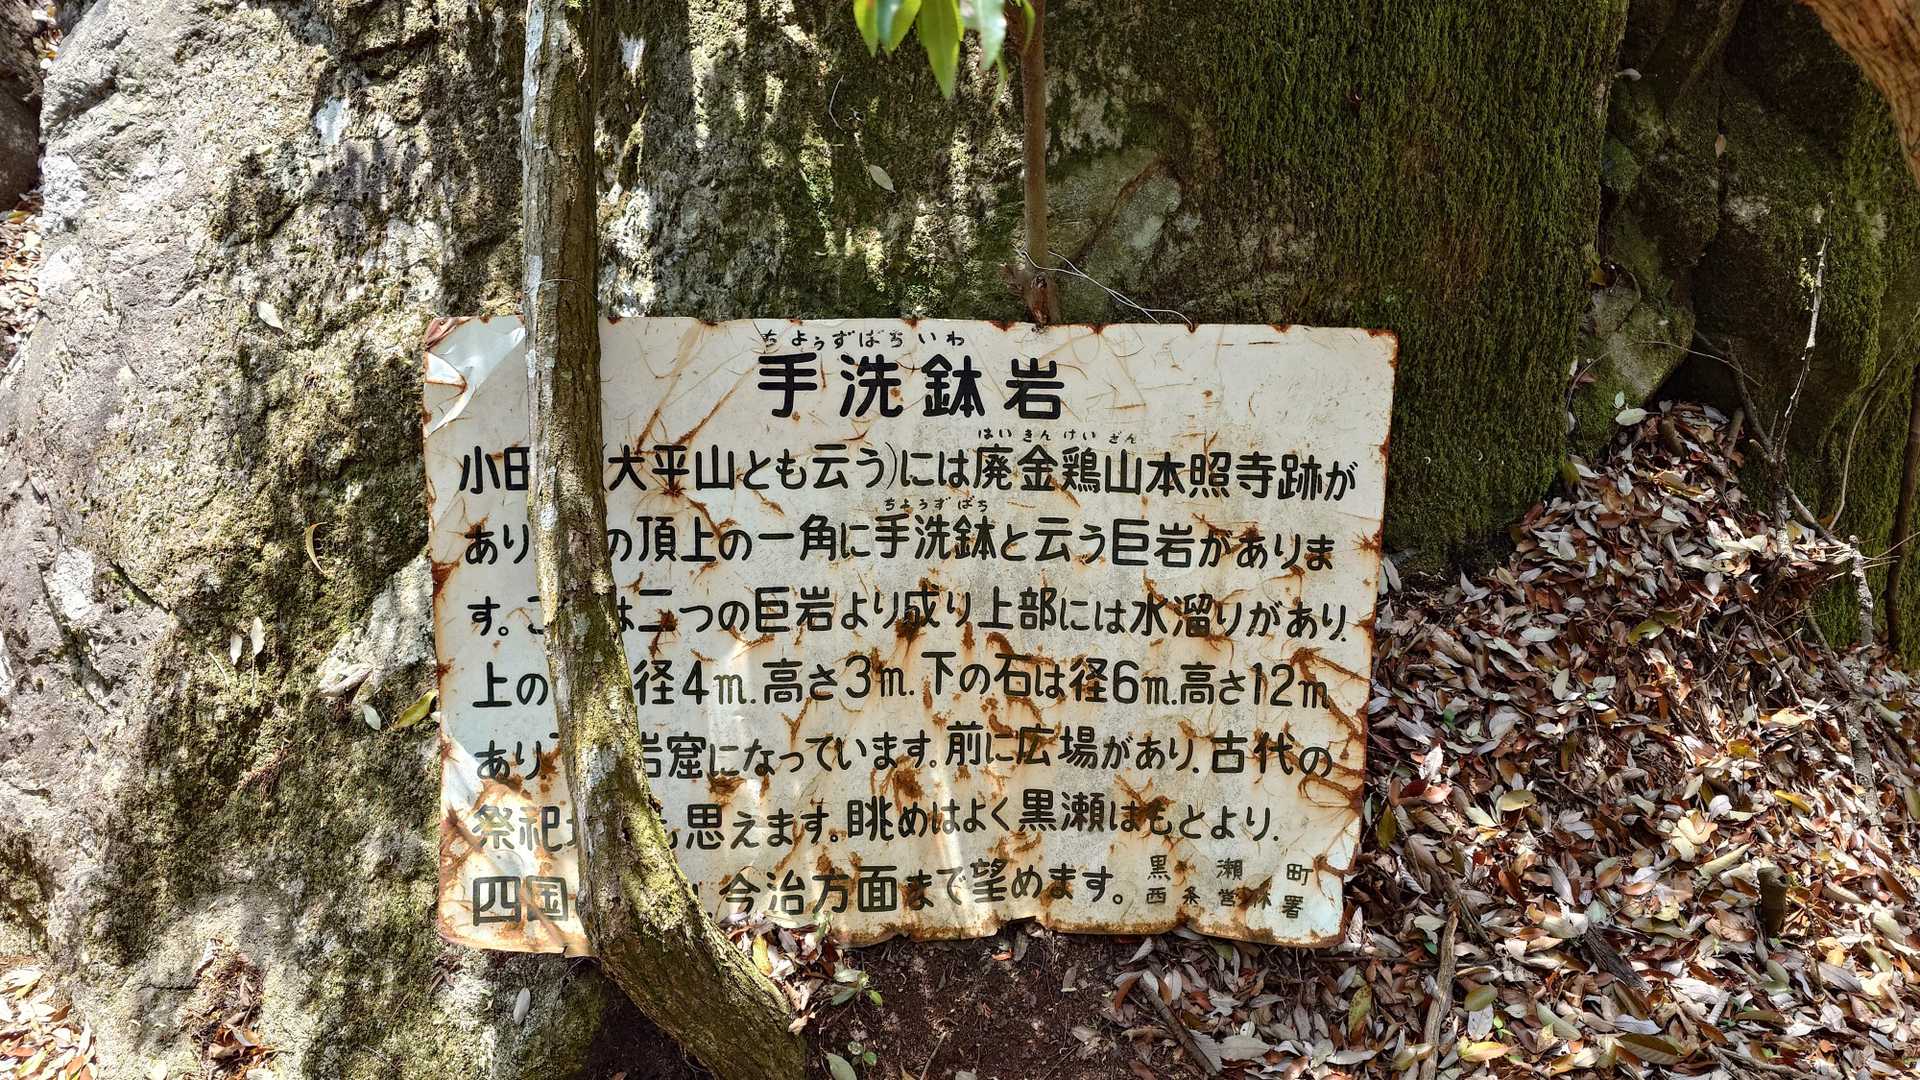 ちょうずばちいわ
手洗鉢岩
はいきんけいざん
小田 (大平山とも云う)には廃金鶏山本照寺跡が
ちょうずばち
あり の頂上の一角に手洗鉢と云う巨岩がありま
す。こ は二つの巨岩より成り上部には水溜りがあり.
上の 径4m.高さ3m.下の石は径6m.高さ12m
あり 岩窟になっています。前に広場があり.古代の
祭祀 思えます。眺めはよく黒瀬はもとより.
四国 今治方面まで望めます。
黒瀬町
西条営林署